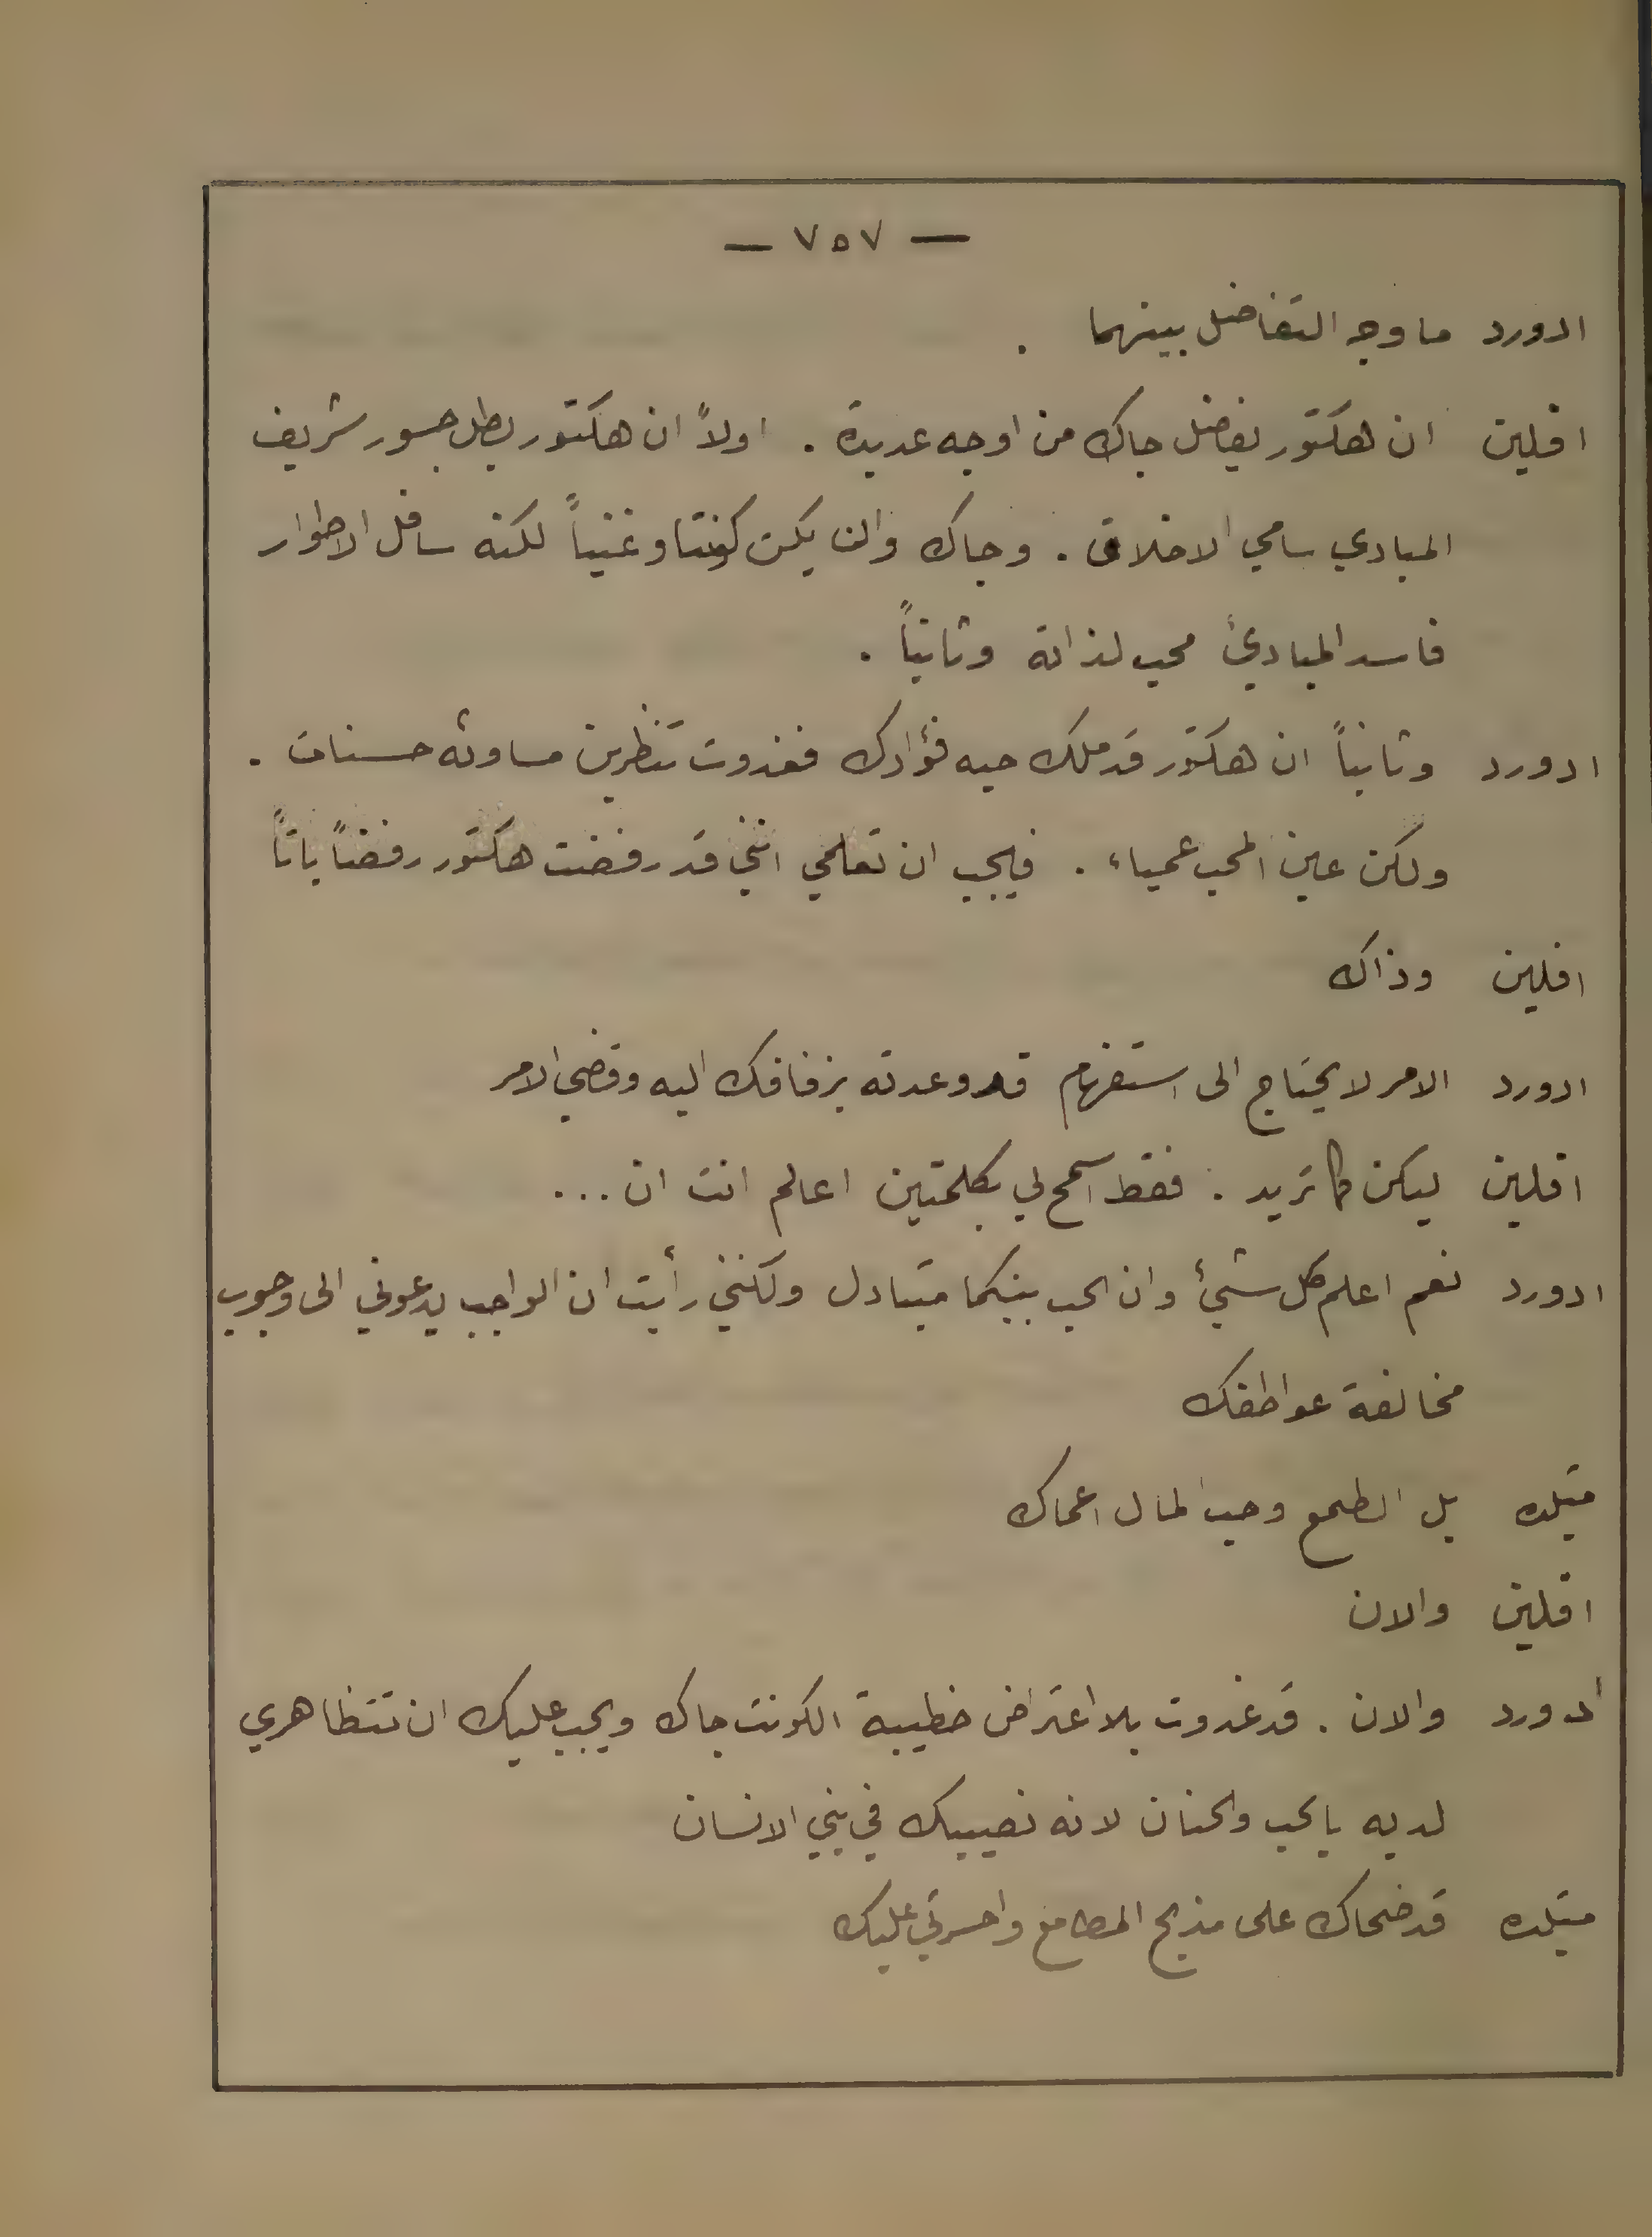 — ٧٥٧ —
ادورد ما وجه التفاضل بينهما .
افلين ان هكتور يفاضل جاك من اوجه عديدة . اولاً ان هكتور بطل جسور شريف
المبادي سامي الاخلاق . وجاك وان يكن كونتا وغنياً لكنه سافل الاطوار
فاسد المبادئ محب لذاته وثانياً .
ادورد وثانياً ان هكتور قد ملك حبه فؤادك فغدوت تنظرين مساوئه حسنات .
ولكن عين المحب عمياء . فيجب ان تعلمي انني قد رفضت هكتور رفضاً باتاً
افلين وذاك
ادورد الامر لا يحتاج الى استفهام قد وعدته بزفافك اليه وقضي الامر
افلين ليكن كما تريد . فقط اسمح لي بكلمتين اعالم انت ان ...
ادورد نعم اعلم كل شيئ وان الحب بينكما متبادل ولكنني رأيت ان الواجب يدعوني الى وجوب
مخالفة عواطفك
متيلده بل الطمع وحب المال اعماك
افلين والان
ادورد والان . قد غدوت بلا اعتراض خطيبة الكونت جاك ويجب عليك ان تتظاهري
لديه بالحب والحنان لانه نصيبك في بني الانسان
متيلده قد ضحاك على مذبح المطامع واحسرتي عليك